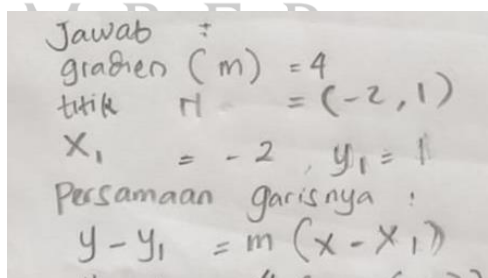 Jawab :
gradien (m) = 4
titik = (-2, 1)
x₁ = -2, y₁ = 1
Persamaan garisnya :
y - y₁ = m (x - x₁)